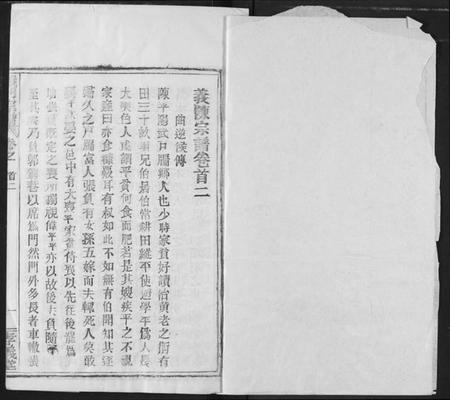 義陳宗譜卷首二
曲逆侯傳
陳平陽武戶牖鄉人也少時家貧好讀治黃老之術有
田三十畝與兄伯居伯常耕田縱平使遊學平爲人長
大美色人或謂平貧何食而肥若是其嫂疾平之不親
家產曰亦食糠覈耳有叔如此不如無有伯聞知其逐
婦久之戶牖富人張負有女孫五嫁而夫輒死人莫敢
娶平欲娶之邑中有大喪平家貧侍喪以先往後罷爲
助負既見之喪所獨視偉平平亦以故後去負隨平
至其家乃負郭窮巷以席爲門然門外多長者車轍張
卷之 首二
一 孝義堂